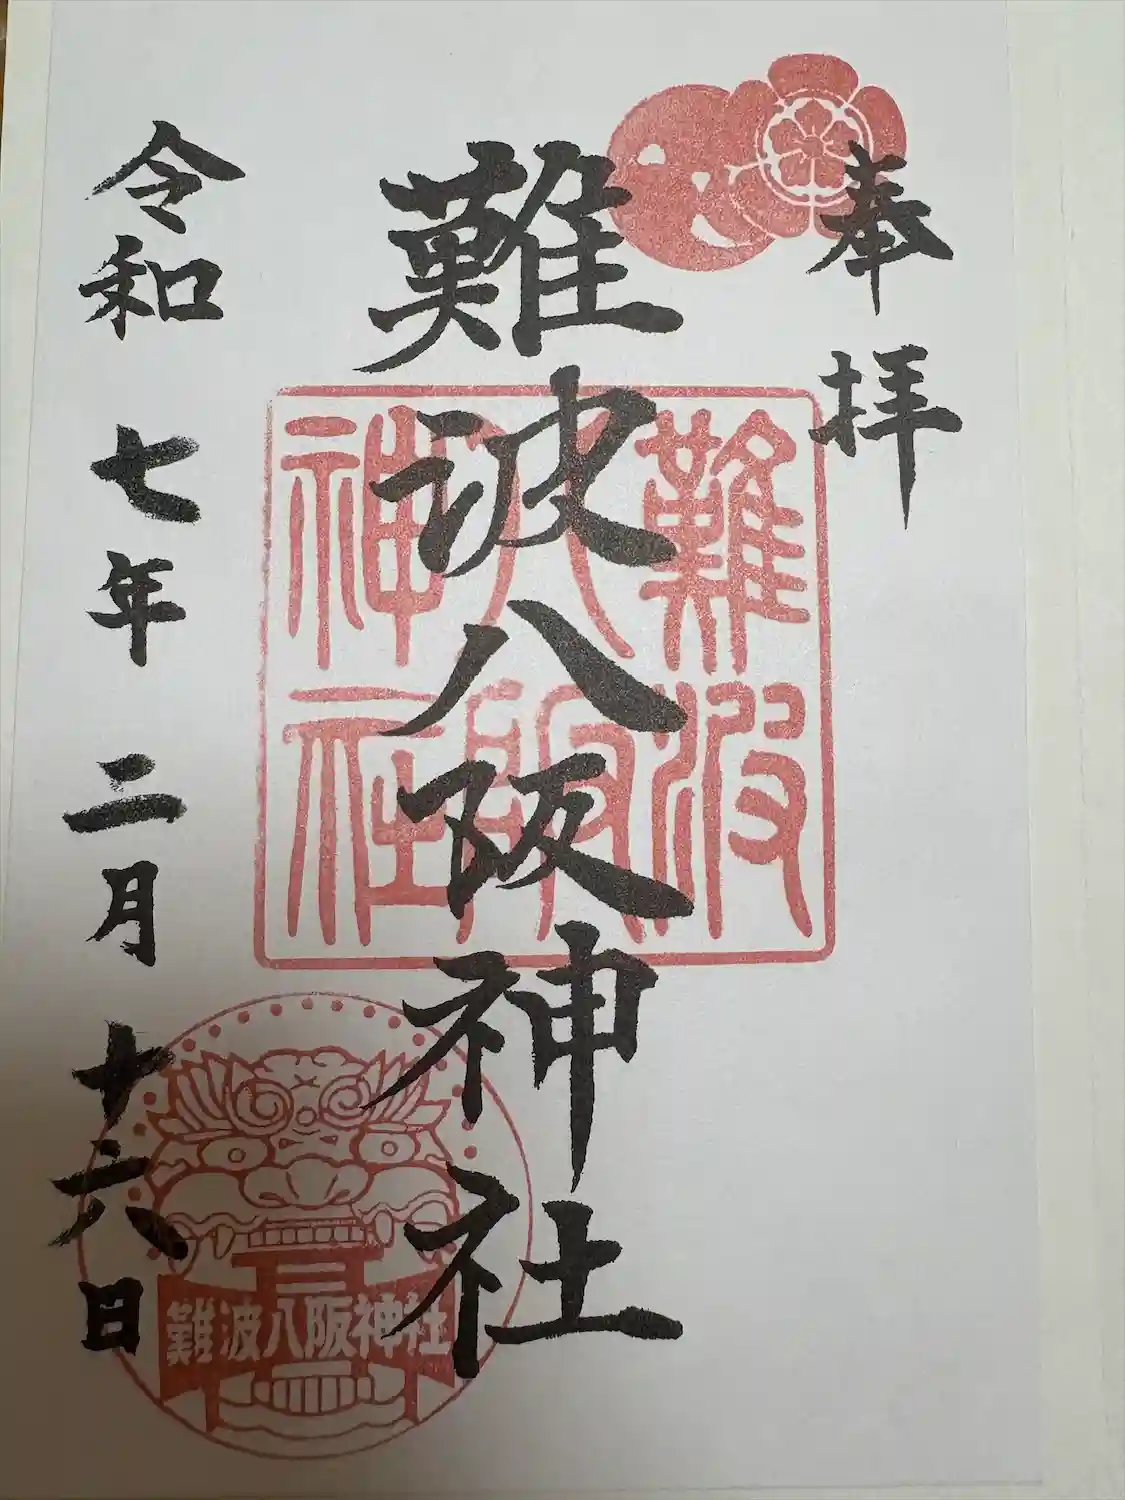 奉拝
難波八阪神社
難波
八阪
神社
令和七年二月十六日
難波八阪神社